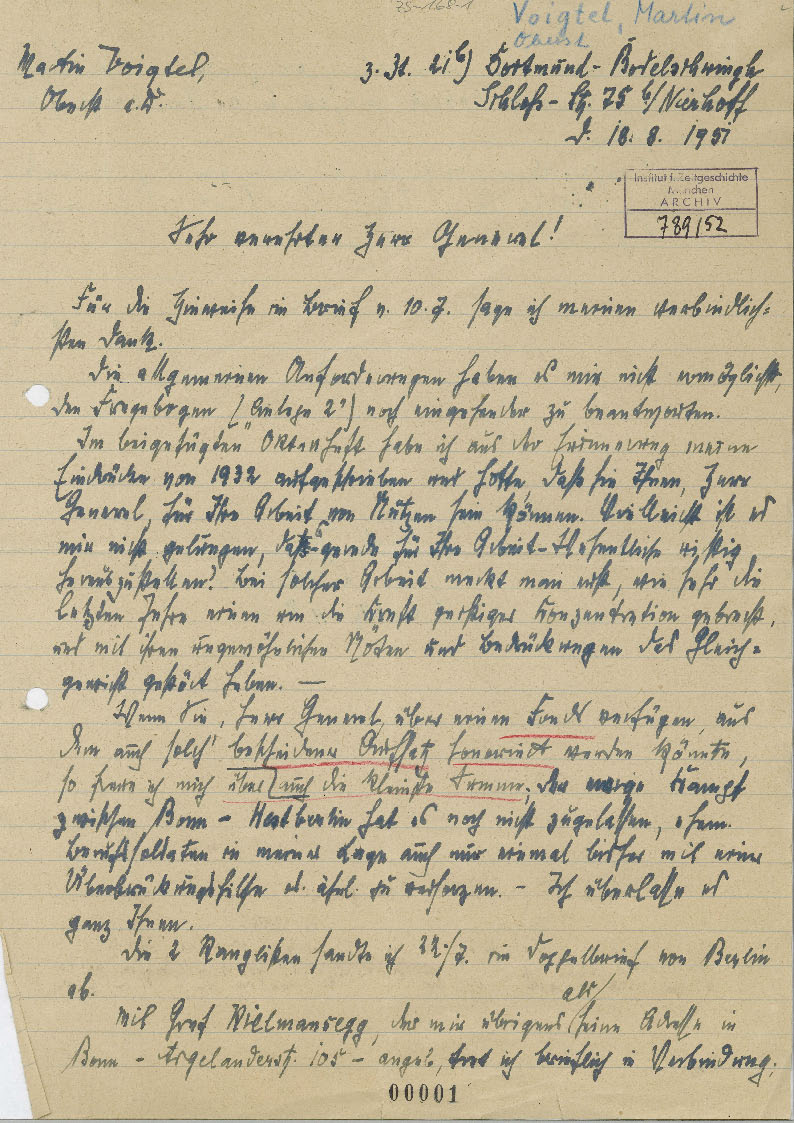 ZS-168-1
Voigtel, Martin
Oberst
Martin Voigtel,
Oberst a.D.
z. Zt. 21b) Dortmund-Bodelschwingh
Schloß-Str. 75 b/Nierhoff
d. 18. 8. 1951
Institut f. Zeitgeschichte
München
ARCHIV
789/52
Sehr verehrter Herr General!
Für die Hinweise im Brief v. 10.7. sage ich meinen verbindlich=
sten Dank.
Die allgemeinen Anforderungen haben es mir nicht ermöglicht,
den Fragebogen (Anlage 2) noch eingehender zu beantworten.
Im beigefügten Aktenheft habe ich aus der Erinnerung meine
Eindrücke von 1932 aufgeschrieben und hoffe, daß sie Ihnen, Herr
General, für Ihre Arbeit von Nutzen sein können. Vielleicht ist es
mir nicht gelungen, das gerade für Ihre Arbeit Wesentliche richtig
herauszustellen! Bei solcher Arbeit merkt man erst, wie sehr die
letzten Jahre einen um die Kraft geistiger Konzentration gebracht,
und mit ihren ungewöhnlichen Nöten und Bedrückungen das Gleich=
gewicht gestört haben. —
Wenn Sie, Herr General, über einen Fonds verfügen, aus
dem auch solch' bescheidener Aufsatz honoriert werden könnte,
so freue ich mich über auch die kleinste Summe; der ewige Kampf
zwischen Bonn - Westberlin hat es noch nicht zugelassen, ehem.
Berufssoldaten in meiner Lage auch nur einmal bisher mit einer
Überbrückungshilfe od. ähnl. zu versorgen. - Ich überlasse es
ganz Ihnen.
Die 2 Ranglisten sandte ich 22./7. im Doppelbrief von Berlin
ab.
Mit Graf Kielmansegg, der mir übrigens als seine Adresse in
Bonn - Argelanderst. 105 - angab, trat ich brieflich in Verbindung.
00001